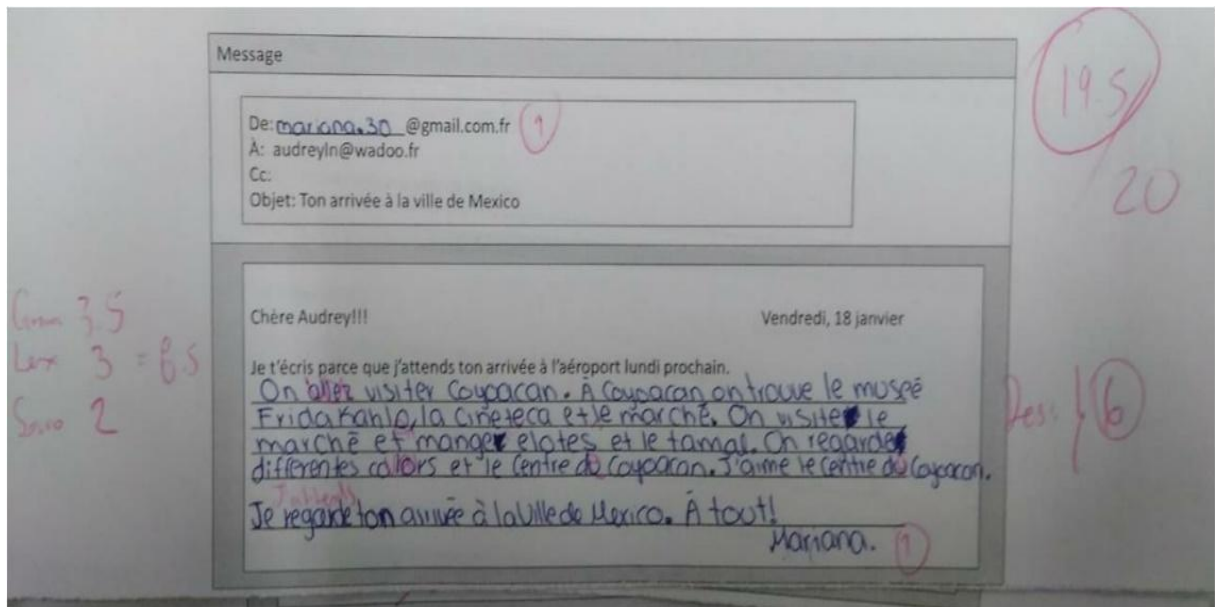 Message
19.5
20
De: mariana.30 @gmail.com.fr 1
À: audreyln@wadoo.fr
Cc:
Objet: Ton arrivée à la ville de Mexico
Chère Audrey!!! Vendredi, 18 janvier
Gram 3.5
Lex 3 = 8.5
Socio 2
Des: 6
Je t'écris parce que j'attends ton arrivée à l'aéroport lundi prochain.
On allez visiter Coyoacan. À Coyoacan on trouve le museé
Frida Kahlo, la Cineteca et le marché. On visite le
marché et manger elotes et le tamal. On regarde
différentes colors et le Centre du Coyoacan. J'aime le centre du Coyoacan.
J'attends
Je regarde ton arrivée à la Ville de Mexico. À tout!
Mariana. 1